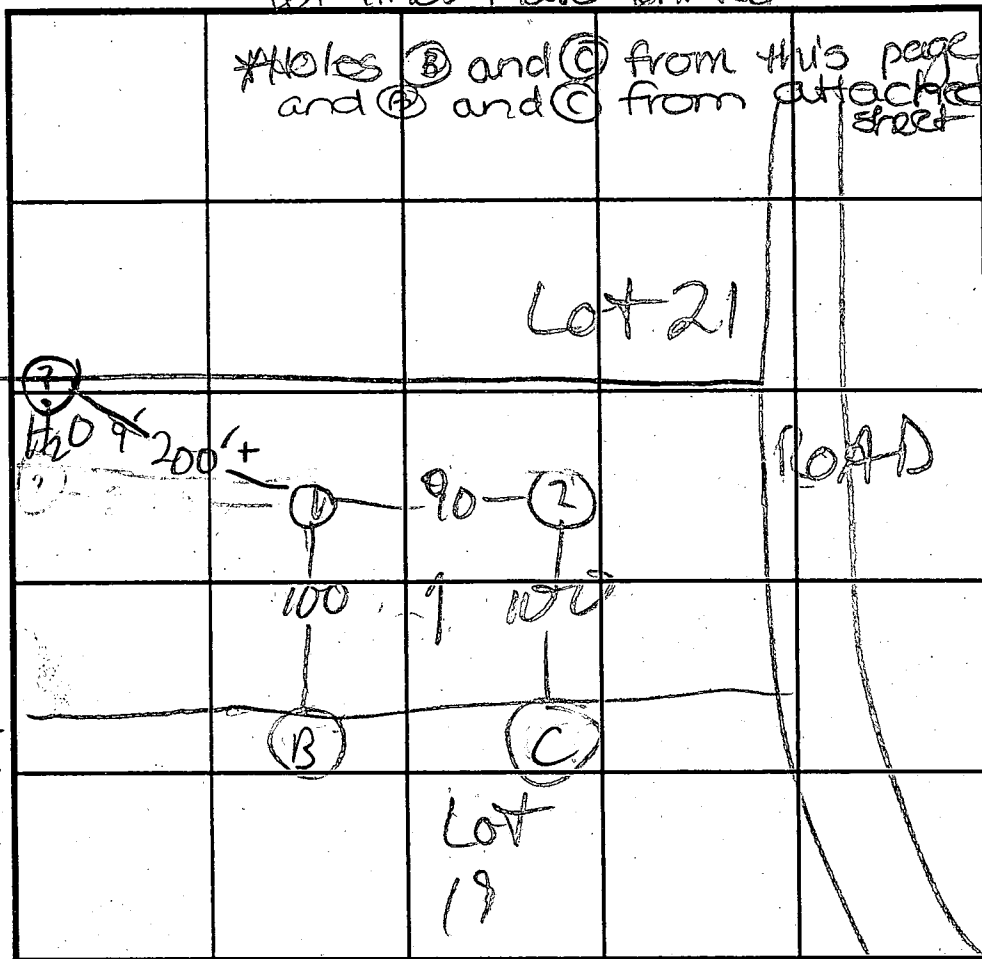 *Holes Ⓑ and Ⓒ from this page
and Ⓐ and Ⓒ from attached
sheet
Lot 21
H₂O 9'
200'+
1
90
2
ROAD
100
100
B
C
Lot